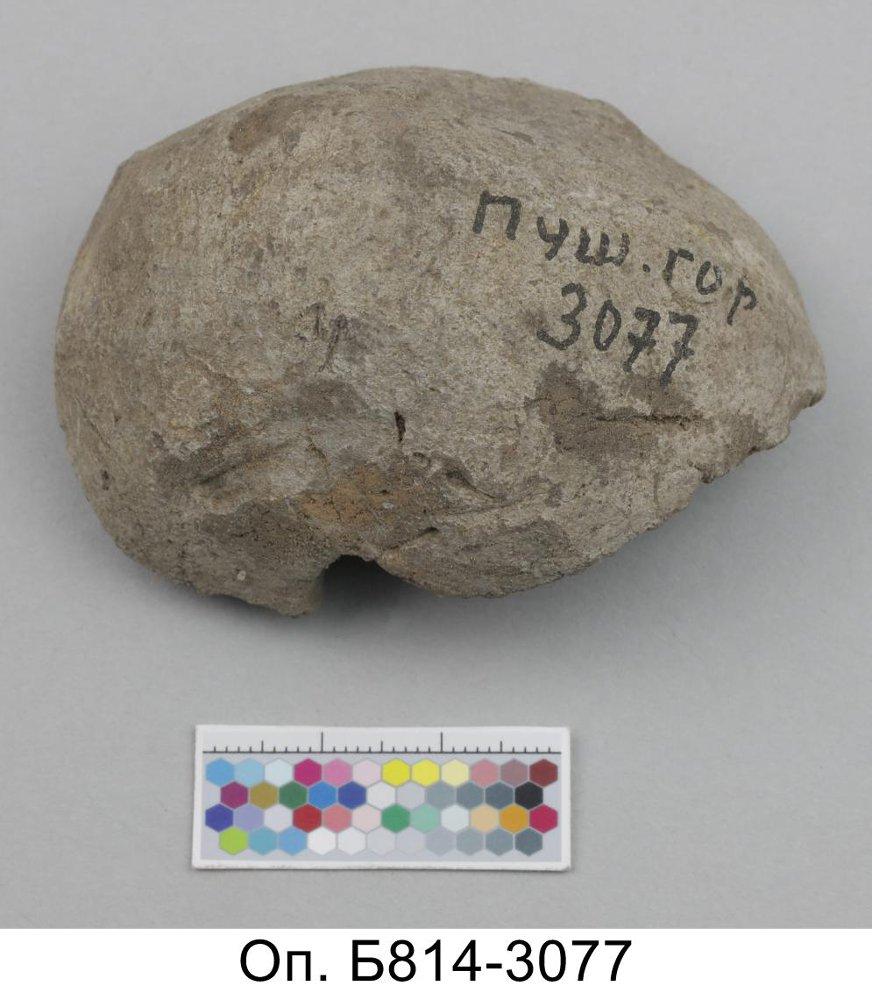 Пуш.гор
3077
Оп. Б814-3077